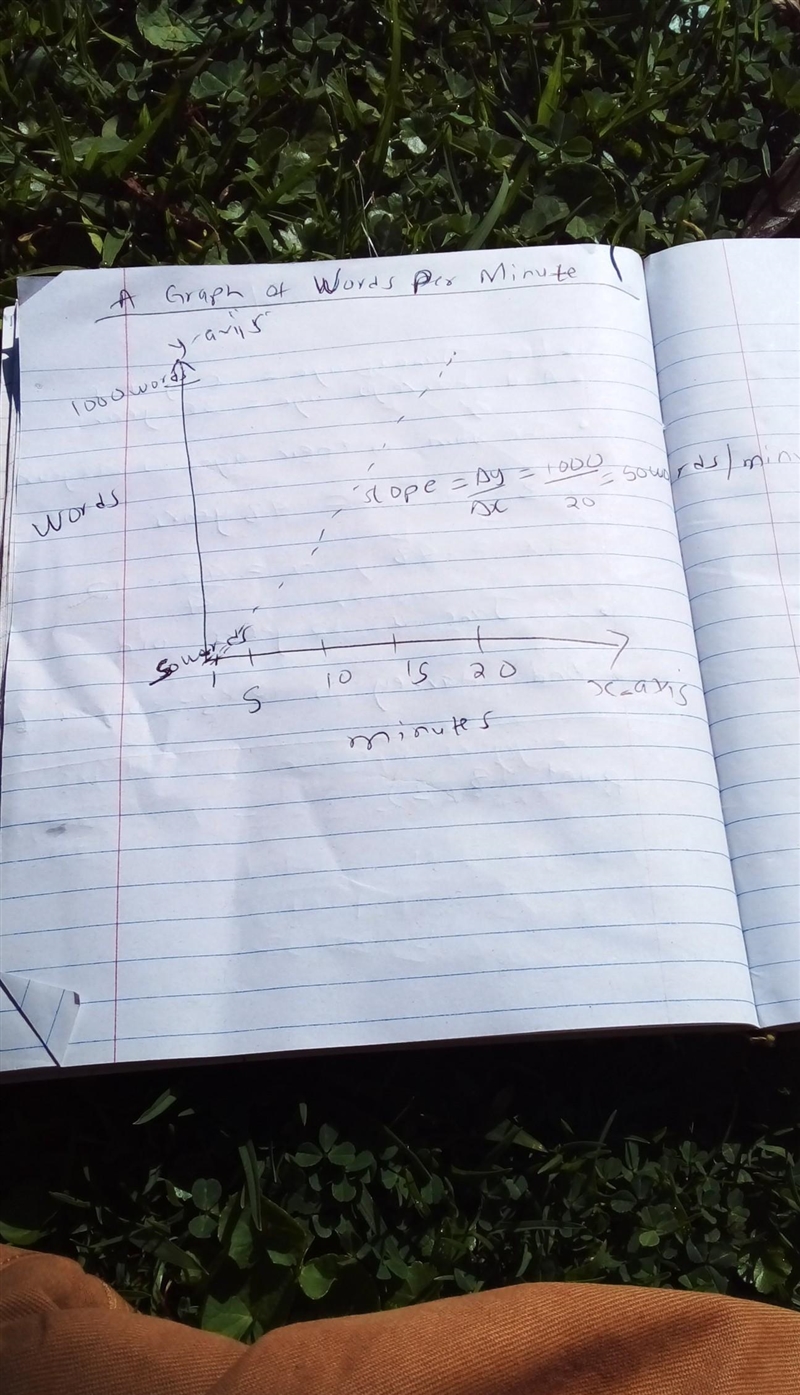 A Graph of Words Per Minute
Y-axis
1000words
slope = Δy/Δx = 1000/20 = 50words/minu
Words
50words
1 5 10 15 20
x-axis
minutes